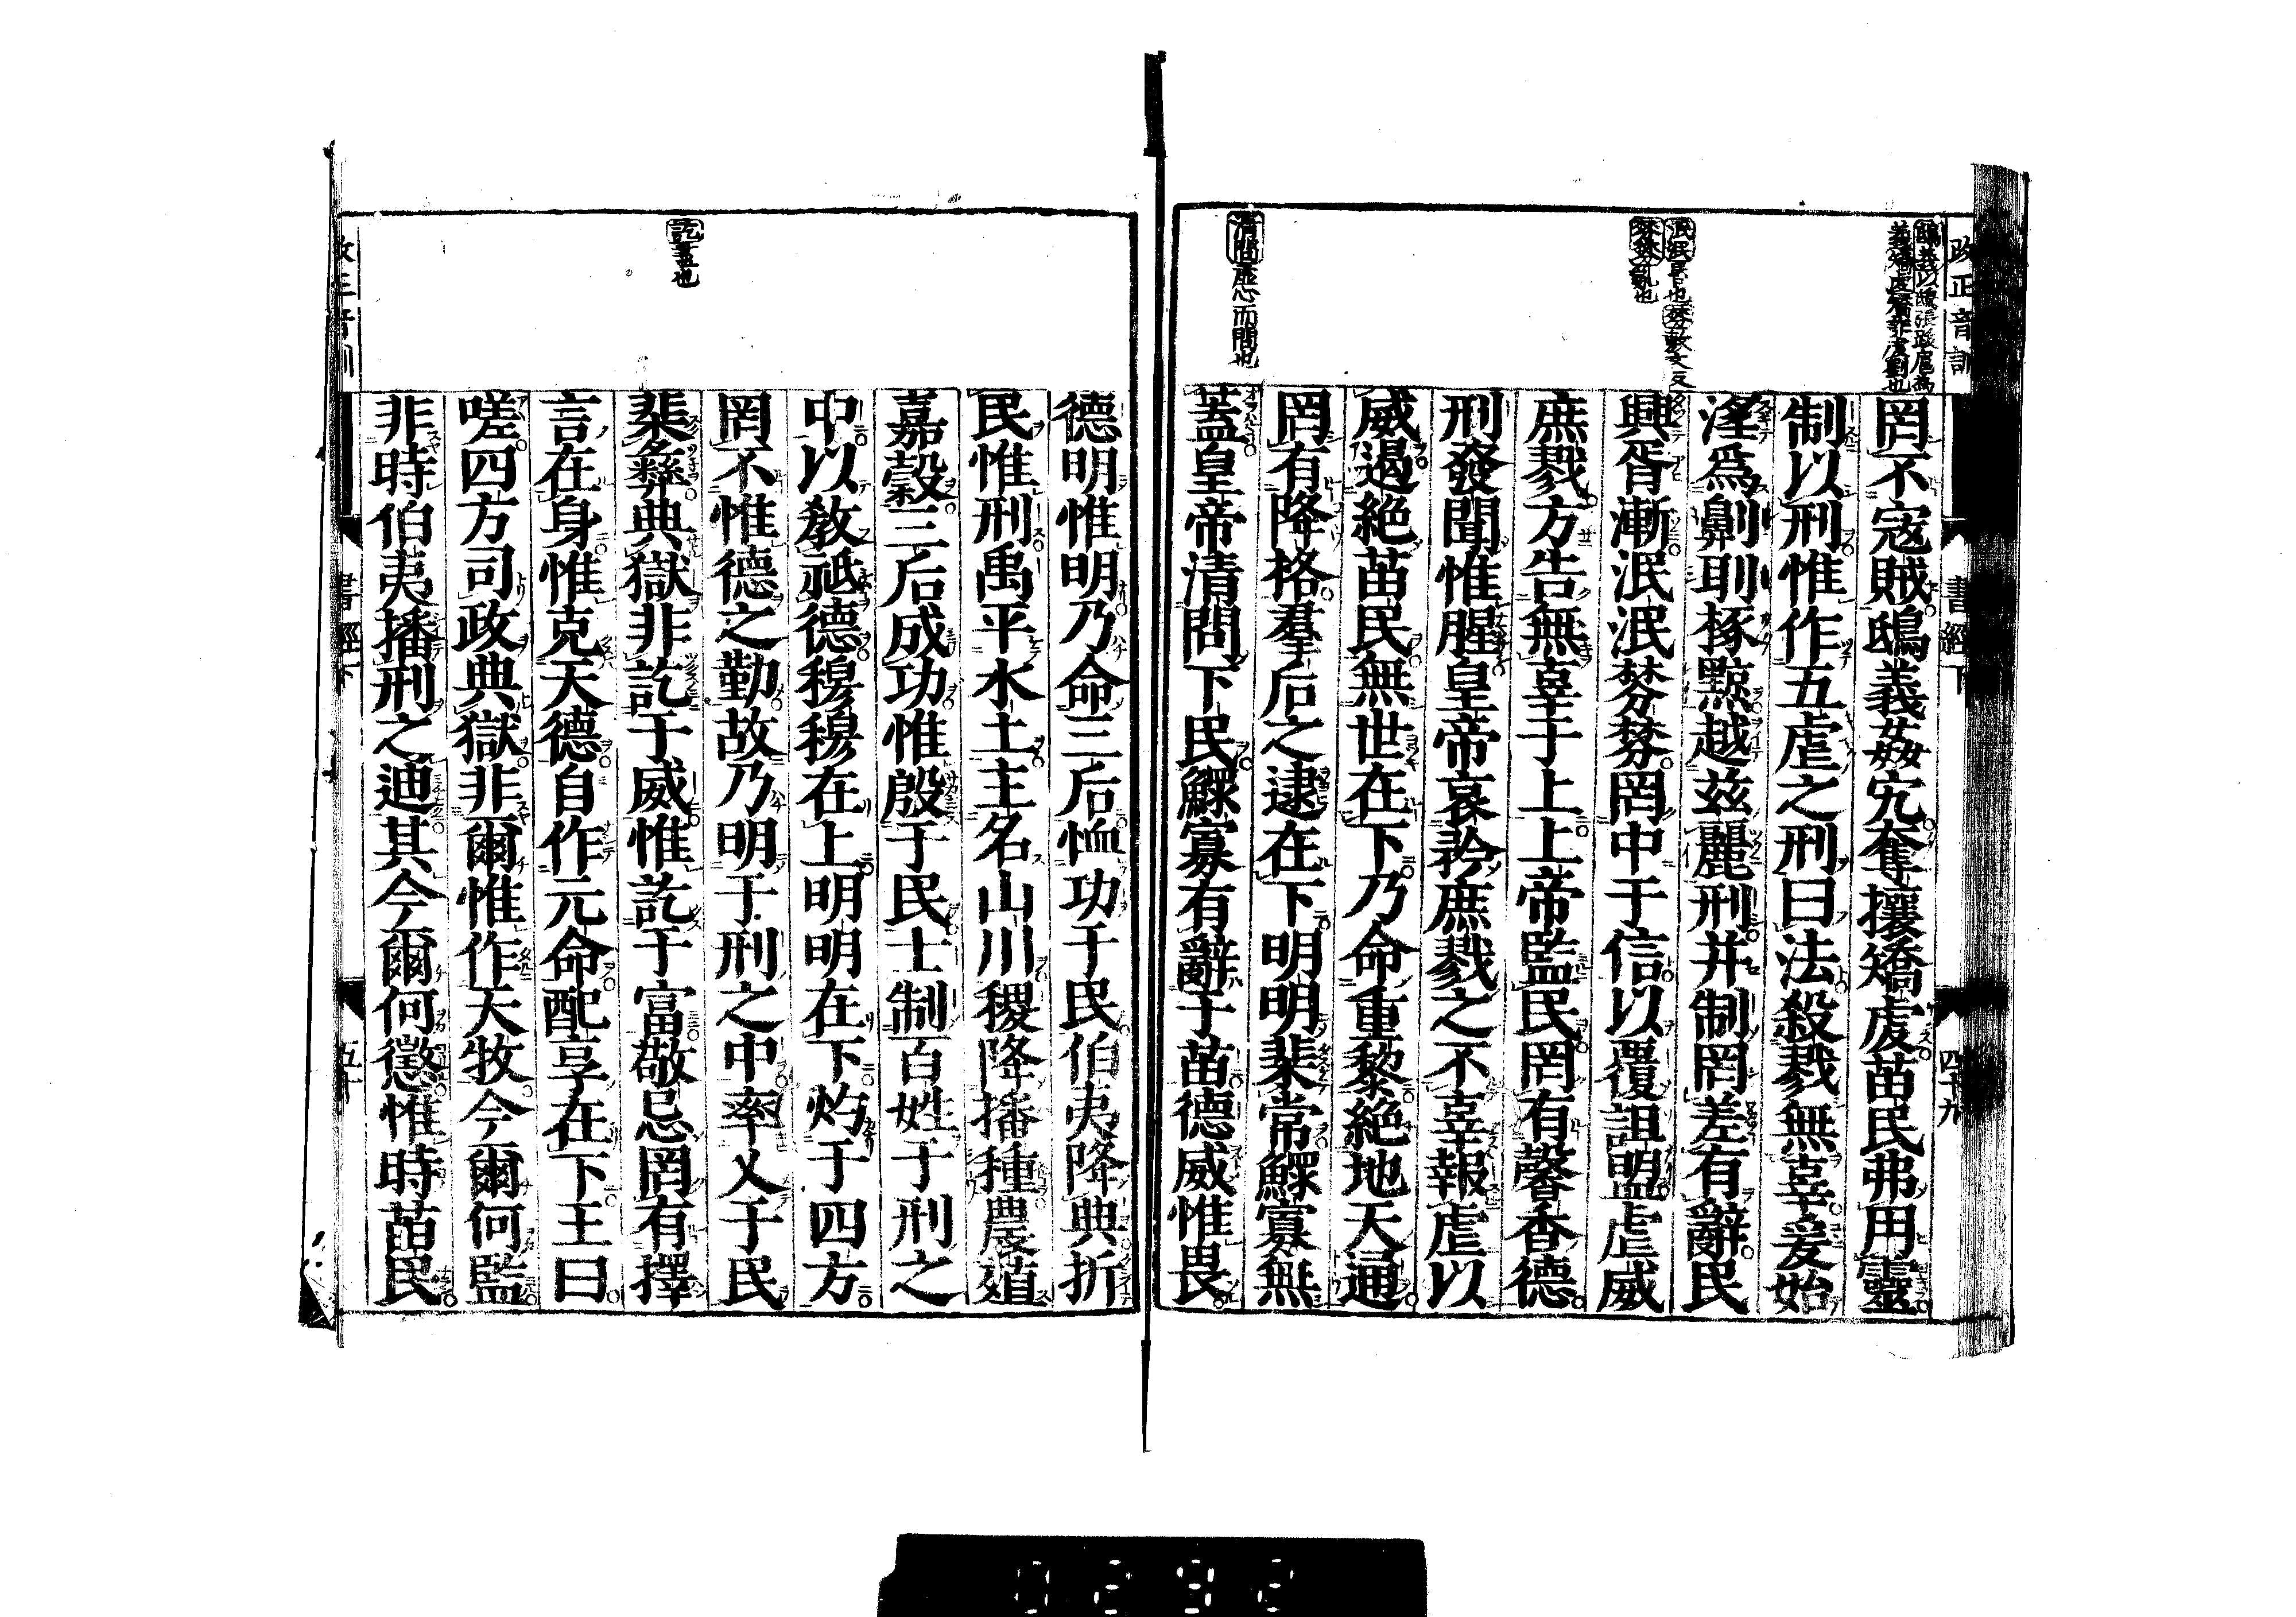 改正音訓
書經下
四十九
鴟義以鴟張跋扈爲
義矯虔矯詐虔劉也
罔不寇賊鴟義姦宄奪攘矯虔苗民弗用靈
制以刑惟作五虐之刑曰法殺戮無辜爰始
淫爲劓刵椓黥越兹麗刑并制罔差有辭民
泯泯昏也棼敷文反
棼棼亂也
興胥漸泯泯棼棼罔中于信以覆詛盟虐威
庶戮方告無辜于上上帝監民罔有馨香德
刑發聞惟腥皇帝哀矜庶戮之不辜報虐以
威遏絶苗民無世在下乃命重黎絶地天通
罔有降格羣后之逮在下明明棐常鰥寡無
清問虛心而問也
蓋皇帝清問下民鰥寡有辭于苗德威惟畏
德明惟明乃命三后恤功于民伯夷降典折
民惟刑禹平水土主名山川稷降播種農殖
嘉穀三后成功惟殷于民士制百姓于刑之
中以敎祗德穆穆在上明明在下灼于四方
罔不惟德之勤故乃明于刑之中率乂于民
訖盡也
棐彝典獄非訖于威惟訖于富敬忌罔有擇
言在身惟克天德自作元命配享在下王曰
嗟四方司政典獄非爾惟作天牧今爾何監
非時伯夷播刑之迪其今爾何懲惟時苗民
書經下
五十
0292